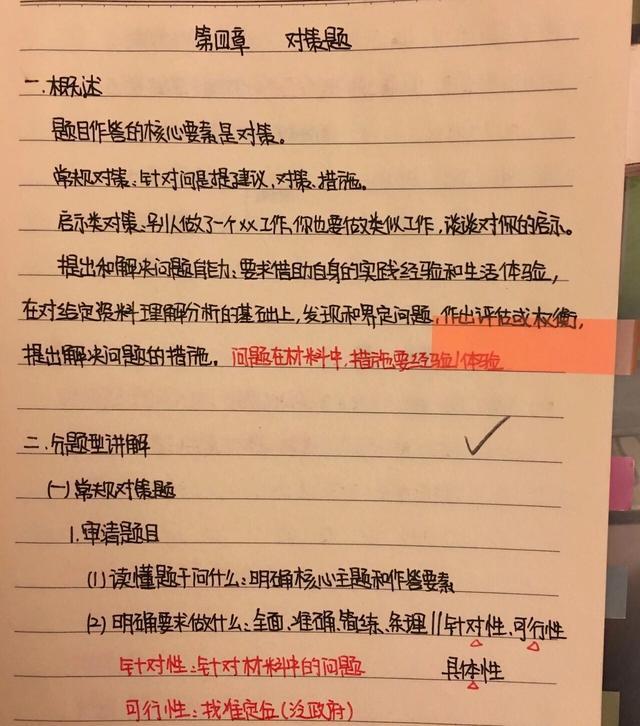 第四章 对策题
一.概述
题目作答的核心要素是对策。
常规对策:针对问是提建议,对策、措施。
启示类对策:别人做了一个xx工作,你也要做类似工作,谈谈对你的启示。
提出和解决问题能力:要求借助自身的实践经验和生活体验,
在对给定资料理解分析的基础上,发现和界定问题,作出评估或权衡,
提出解决问题的措施。问题在材料中,措施要经验/体验
二.分题型讲解
(一)常规对策题
1.审清题目
(1)读懂题干问什么:明确核心主题和作答要素
(2)明确要求做什么:全面、准确、简练、条理||针对性、可行性
针对性:针对材料中的问题 具体性
可行性:找准定位(泛政府)